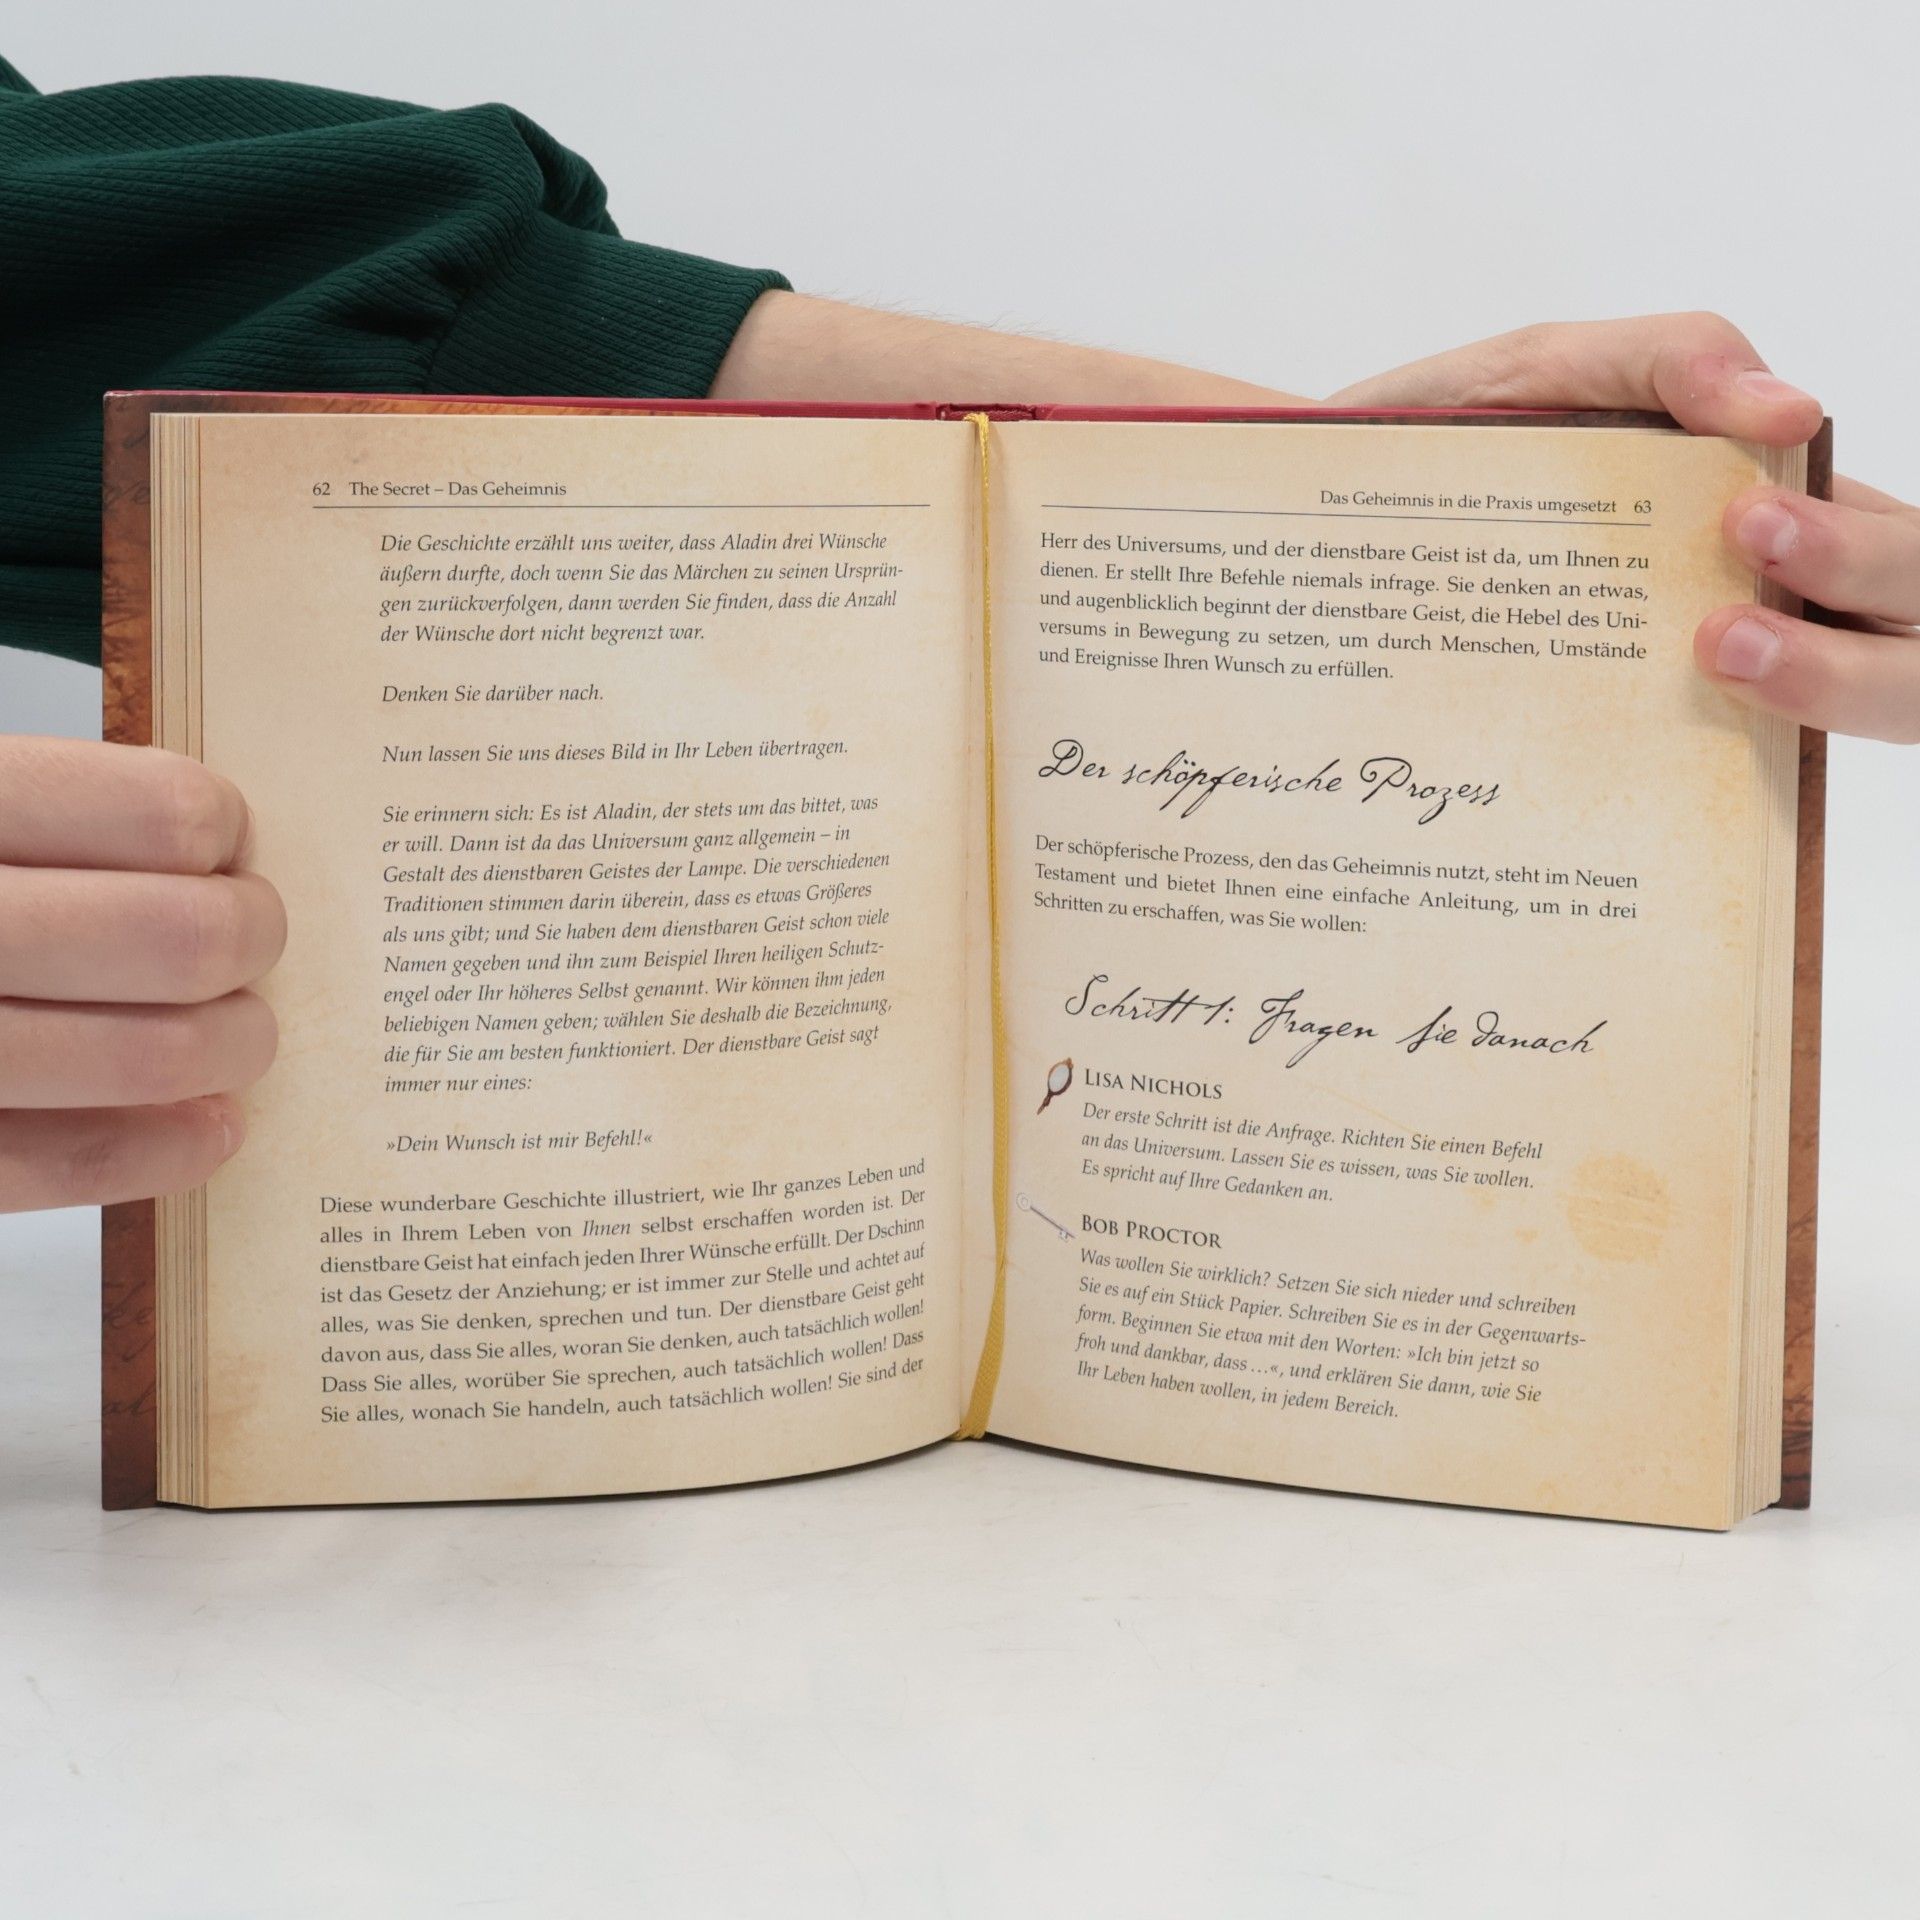 62 The Secret – Das Geheimnis
Die Geschichte erzählt uns weiter, dass Aladin drei Wünsche
äußern durfte, doch wenn Sie das Märchen zu seinen Ursprün-
gen zurückverfolgen, dann werden Sie finden, dass die Anzahl
der Wünsche dort nicht begrenzt war.
Denken Sie darüber nach.
Nun lassen Sie uns dieses Bild in Ihr Leben übertragen.
Sie erinnern sich: Es ist Aladin, der stets um das bittet, was
er will. Dann ist da das Universum ganz allgemein – in
Gestalt des dienstbaren Geistes der Lampe. Die verschiedenen
Traditionen stimmen darin überein, dass es etwas Größeres
als uns gibt; und Sie haben dem dienstbaren Geist schon viele
Namen gegeben und ihn zum Beispiel Ihren heiligen Schutz-
engel oder Ihr höheres Selbst genannt. Wir können ihm jeden
beliebigen Namen geben; wählen Sie deshalb die Bezeichnung,
die für Sie am besten funktioniert. Der dienstbare Geist sagt
immer nur eines:
»Dein Wunsch ist mir Befehl!«
Diese wunderbare Geschichte illustriert, wie Ihr ganzes Leben und
alles in Ihrem Leben von Ihnen selbst erschaffen worden ist. Der
dienstbare Geist hat einfach jeden Ihrer Wünsche erfüllt. Der Dschinn
ist das Gesetz der Anziehung; er ist immer zur Stelle und achtet auf
alles, was Sie denken, sprechen und tun. Der dienstbare Geist geht
davon aus, dass Sie alles, woran Sie denken, auch tatsächlich wollen!
Dass Sie alles, worüber Sie sprechen, auch tatsächlich wollen! Dass
Sie alles, wonach Sie handeln, auch tatsächlich wollen! Sie sind der
Das Geheimnis in die Praxis umgesetzt 63
Herr des Universums, und der dienstbare Geist ist da, um Ihnen zu
dienen. Er stellt Ihre Befehle niemals infrage. Sie denken an etwas,
und augenblicklich beginnt der dienstbare Geist, die Hebel des Uni-
versums in Bewegung zu setzen, um durch Menschen, Umstände
und Ereignisse Ihren Wunsch zu erfüllen.
Der schöpferische Prozess
Der schöpferische Prozess, den das Geheimnis nutzt, steht im Neuen
Testament und bietet Ihnen eine einfache Anleitung, um in drei
Schritten zu erschaffen, was Sie wollen:
Schritt 1: Fragen Sie danach
LISA NICHOLS
Der erste Schritt ist die Anfrage. Richten Sie einen Befehl
an das Universum. Lassen Sie es wissen, was Sie wollen.
Es spricht auf Ihre Gedanken an.
BOB PROCTOR
Was wollen Sie wirklich? Setzen Sie sich nieder und schreiben
Sie es auf ein Stück Papier. Schreiben Sie es in der Gegenwarts-
form. Beginnen Sie etwa mit den Worten: »Ich bin jetzt so
froh und dankbar, dass …«, und erklären Sie dann, wie Sie
Ihr Leben haben wollen, in jedem Bereich.